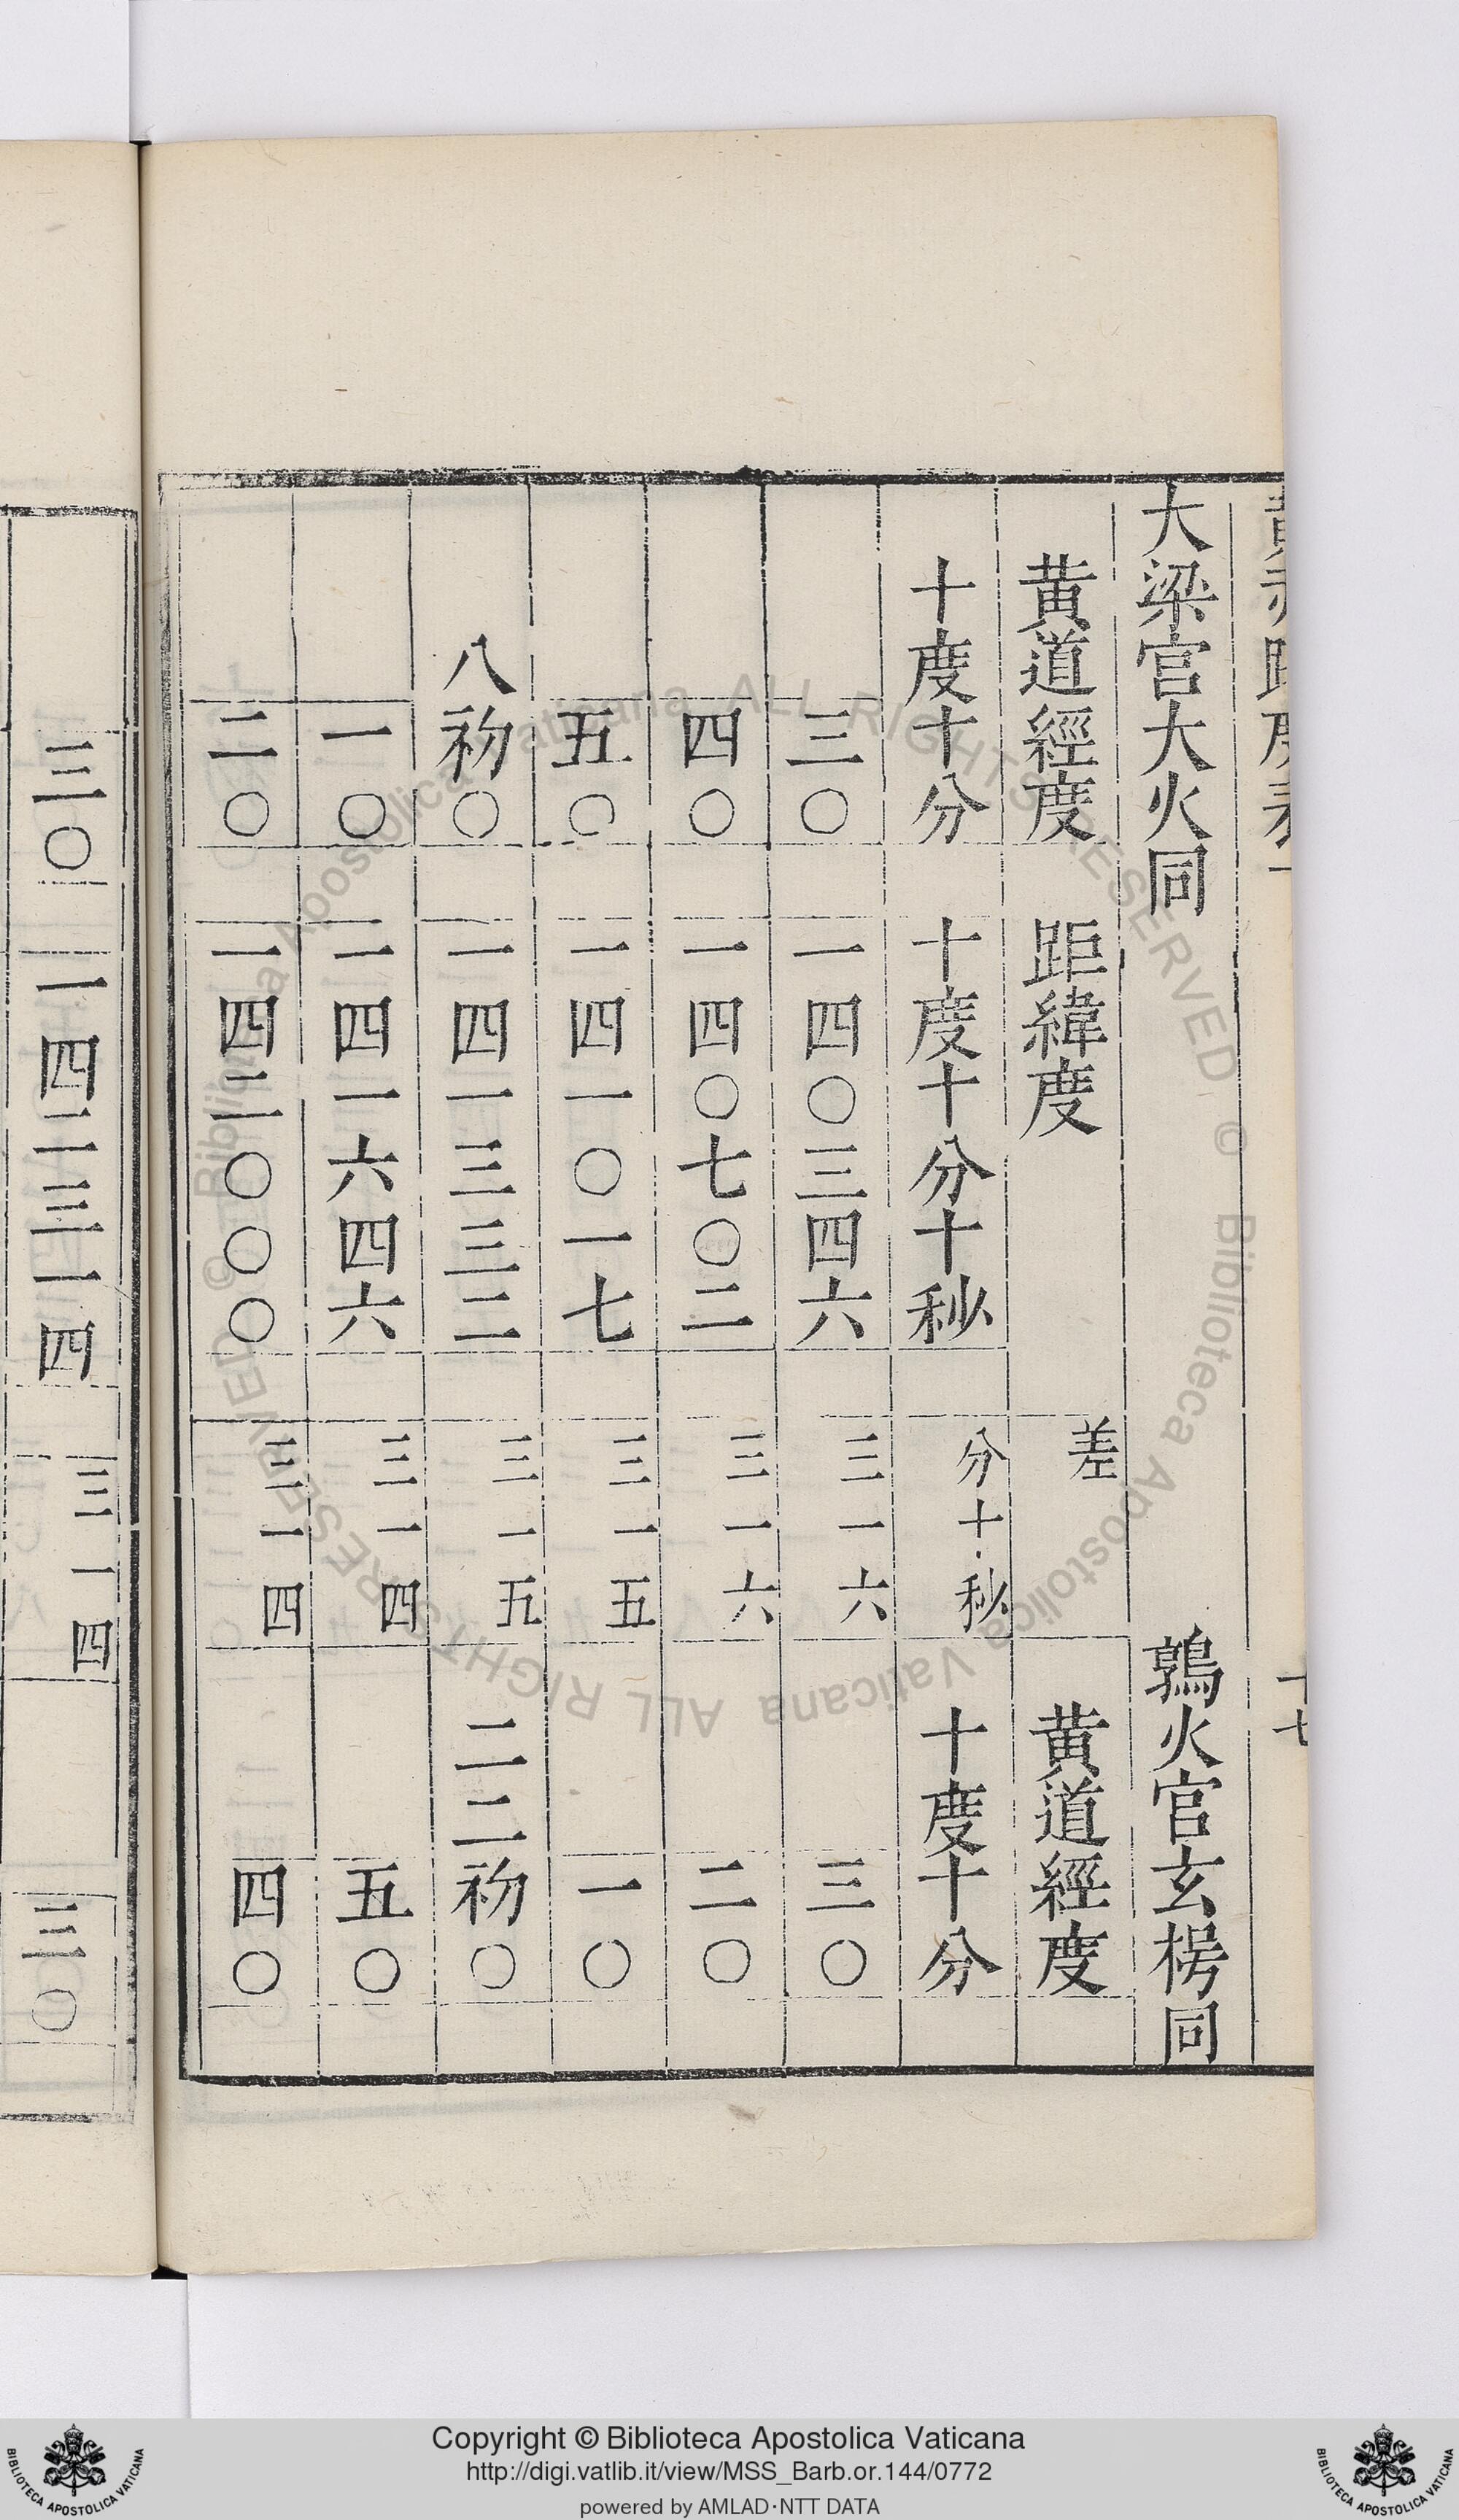 大梁官大火同 鶉火官玄枵同
黃道經度 距緯度 差 黃道經度
十度十分 十度十分十秒 分十秒 十度十分
三〇 一四〇三四六 三一六 三〇
四〇 一四〇七〇二 三一六 二〇
五〇 一四一〇一七 三一五 一〇
八初〇 一四一三三二 三一五 二二初〇
一〇 一四一六四六 三一四 五〇
二〇 一四二〇〇〇 三一四 四〇
三〇 一四二三一四 三一四 三〇
十七
© Biblioteca Apostolica Vaticana ALL RIGHTS RESERVED
BIBLIOTECA APOSTOLICA VATICANA
Copyright © Biblioteca Apostolica Vaticana
http://digi.vatlib.it/view/MSS_Barb.or.144/0772
powered by AMLAD·NTT DATA
BIBLIOTECA APOSTOLICA VATICANA